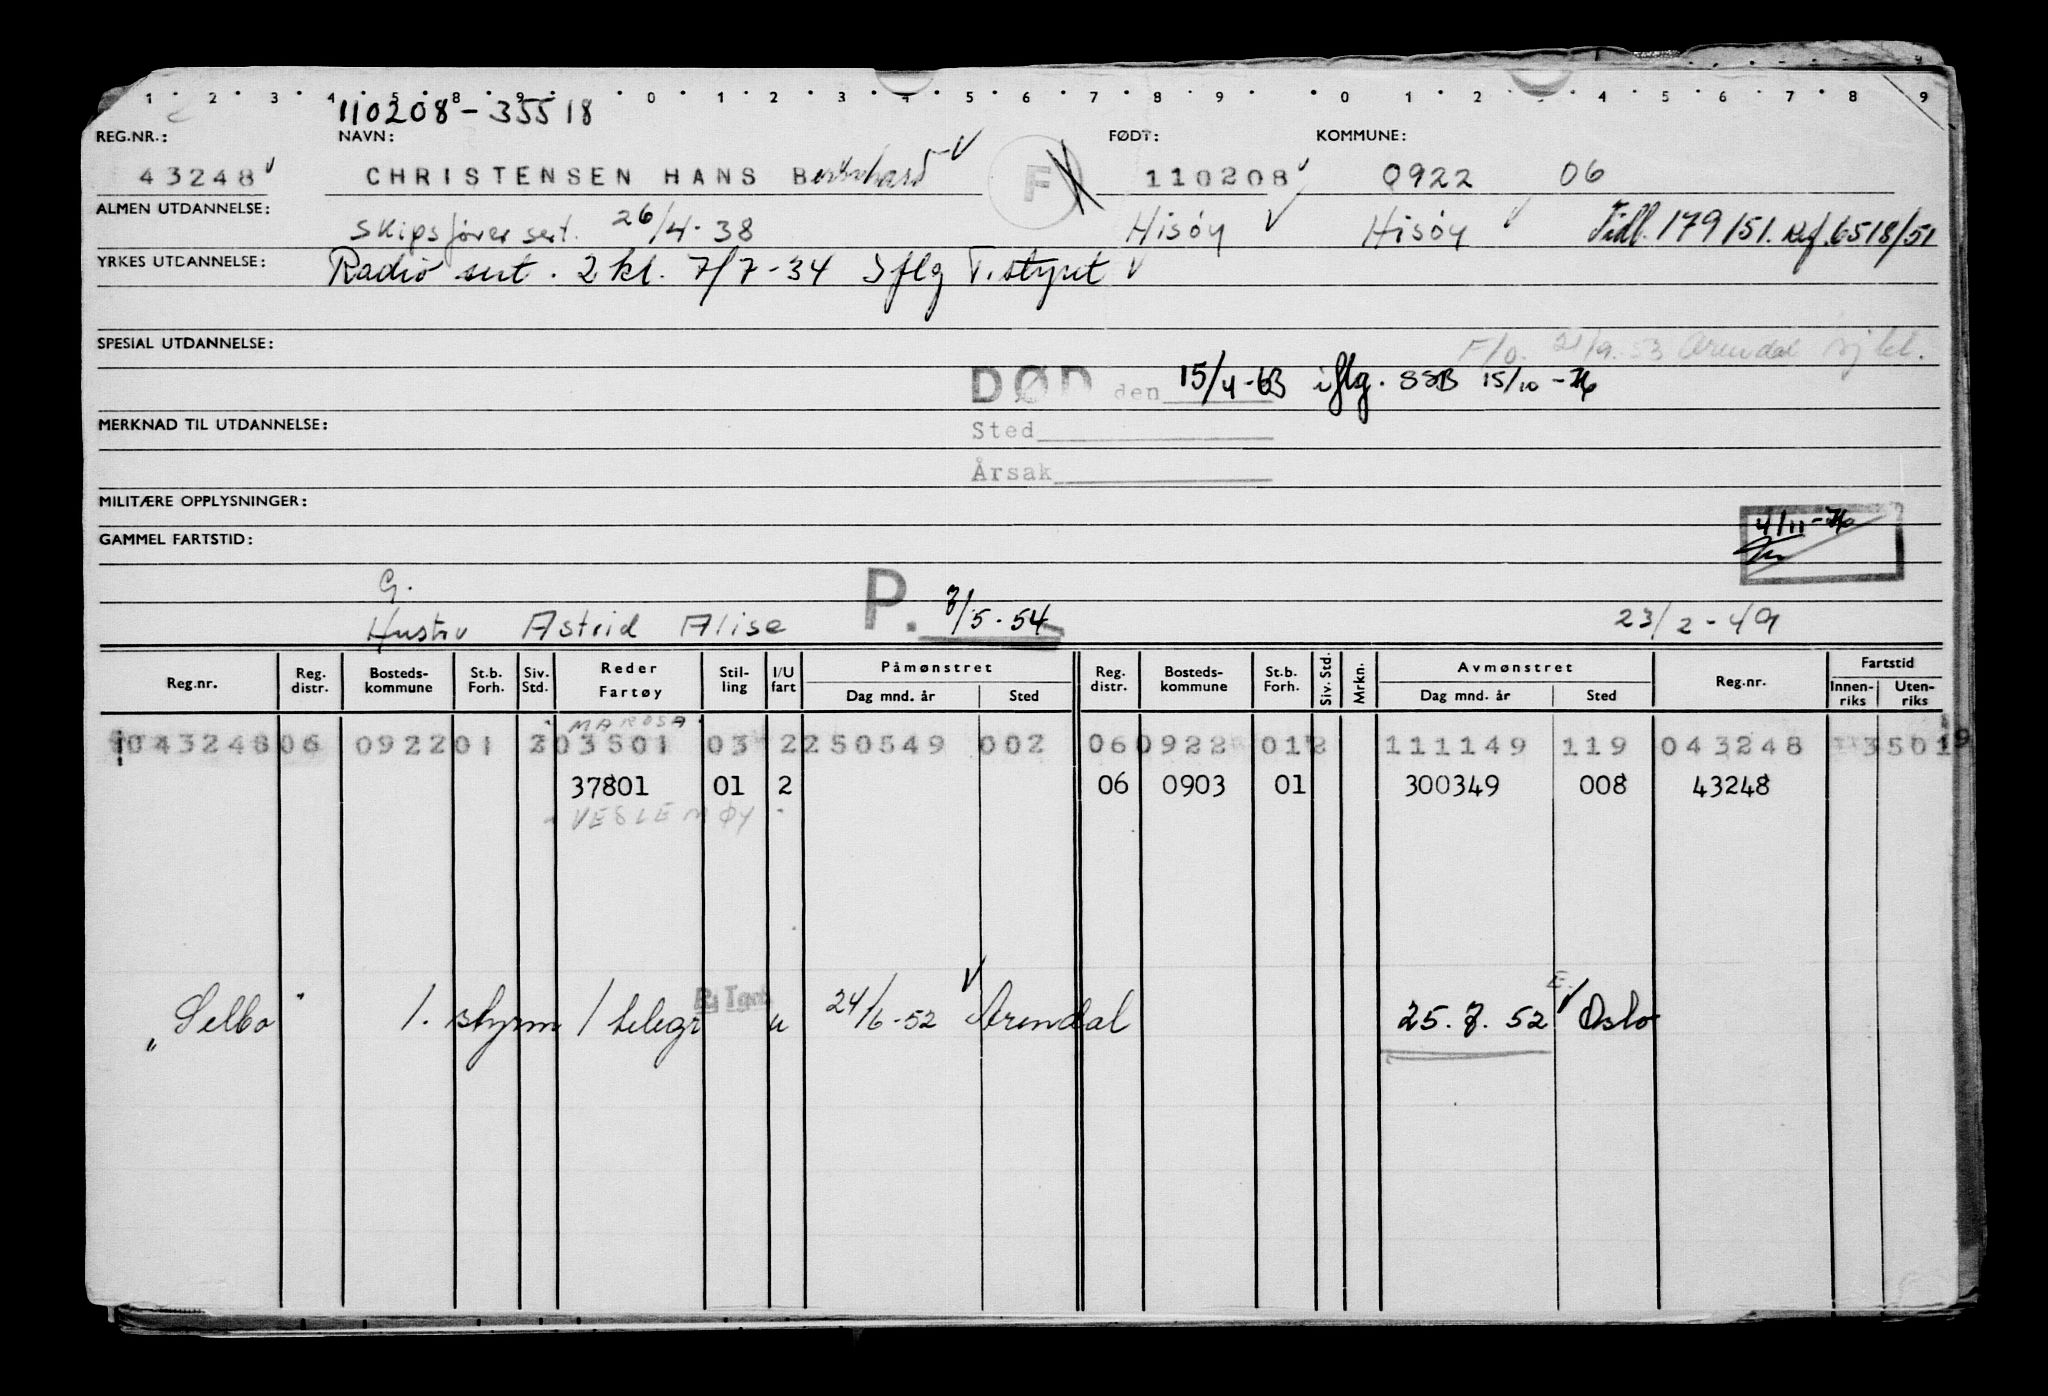 1 2 3 4 5 8 9 0 1 2 3 4 5 6 7 8 9 0 1 2 3 4 5 6 7 8 9
110208-35518
REG.NR.: NAVN: FØDT: KOMMUNE:
43248 CHRISTENSEN HANS Bernhard F 110208 0922 06
ALMEN UTDANNELSE: Skipsfører sert. 26/4-38 Hisøy Hisøy 179/51. 6518/51
YRKES UTDANNELSE: Radio sert. 2 kl. 7/7-34 T.styret
SPESIAL UTDANNELSE: F/O. 21/9-53 Arendal sj kt.
DØD den 15/4-63 iflg. SSB 15/10-76
MERKNAD TIL UTDANNELSE: Sted
Årsak
MILITÆRE OPPLYSNINGER:
4/11-76
GAMMEL FARTSTID:
G.
Hustru Astrid Alise P. 3/5-54 23/2-49
Reg.nr. Reg. distr. Bosteds-kommune St.b. Forh. Siv. Std. Reder Fartøy Stil-ling I/U fart Påmønstret Dag mnd. år Sted Reg. distr. Bosteds-kommune St.b. Forh. Siv. Std. Mrkn. Avmønstret Dag mnd. år Sted Reg.nr. Fartstid Innen-riks Uten-riks
MAROSA
043248 06 0922 01 2 03501 03 2 250549 002 06 0922 01 2 111149 119 043248 3501
37801 01 2 06 0903 01 300349 008 43248
VESLEMØY
"Selbo" 1. styrm / telegr u 24/6-52 Arendal 25.7.52 E. Oslo